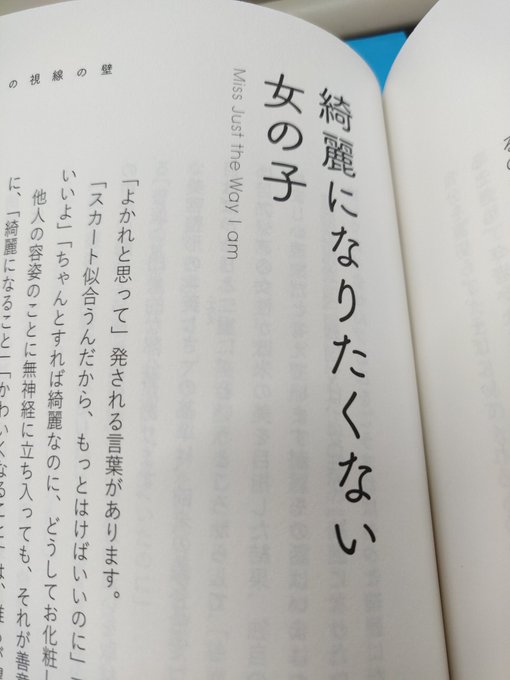 の視線の壁
綺麗になりたくない
女の子
Miss Just the Way I am
「よかれと思って」発される言葉があります。
「スカート似合うんだから、もっとはけばいいのに」「
いいよ」「ちゃんとすれば綺麗なのに、どうしてお化粧し
他人の容姿のことに無神経に立ち入っても、それが善意
に、「綺麗になること」「かわいくなること」は、